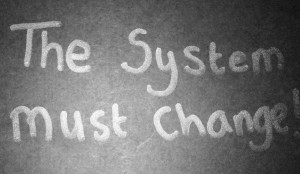 The System
must Change